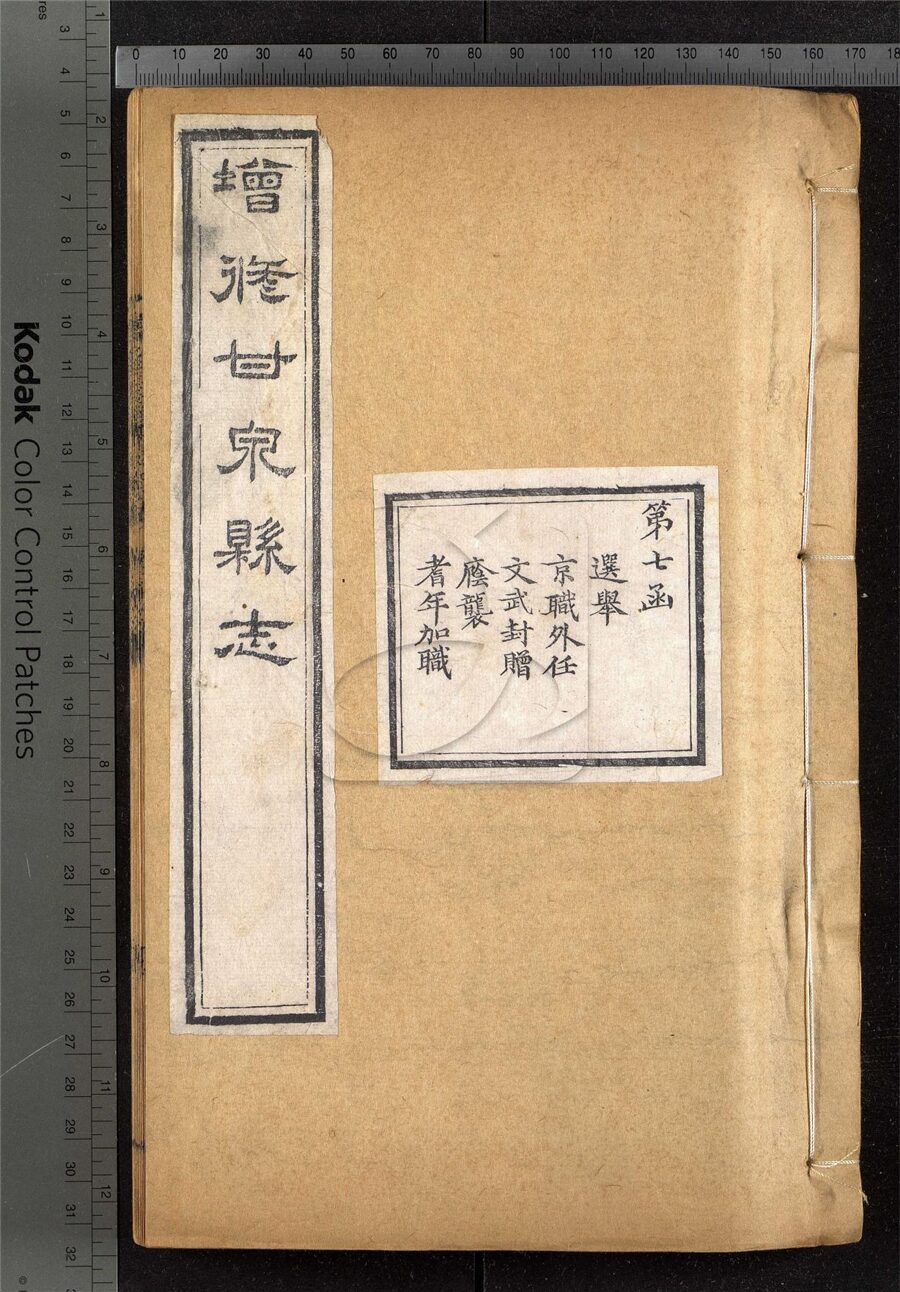 增修甘泉縣志
第七函
選舉
京職外任
文武封贈
廕襲
耆年加職
0 10 20 30 40 50 60 70 80 90 100 110 120 130 140 150 160 170 18
Kodak Color Control Patches
res
3 4 5 6 7 8 9 10 11 12 13 14 15 16 17 18 19 20 21 22 23 24 25 26 27 28 29 30 31 32
1 2 3 4 5 6 7 8 9 10 11 12
©